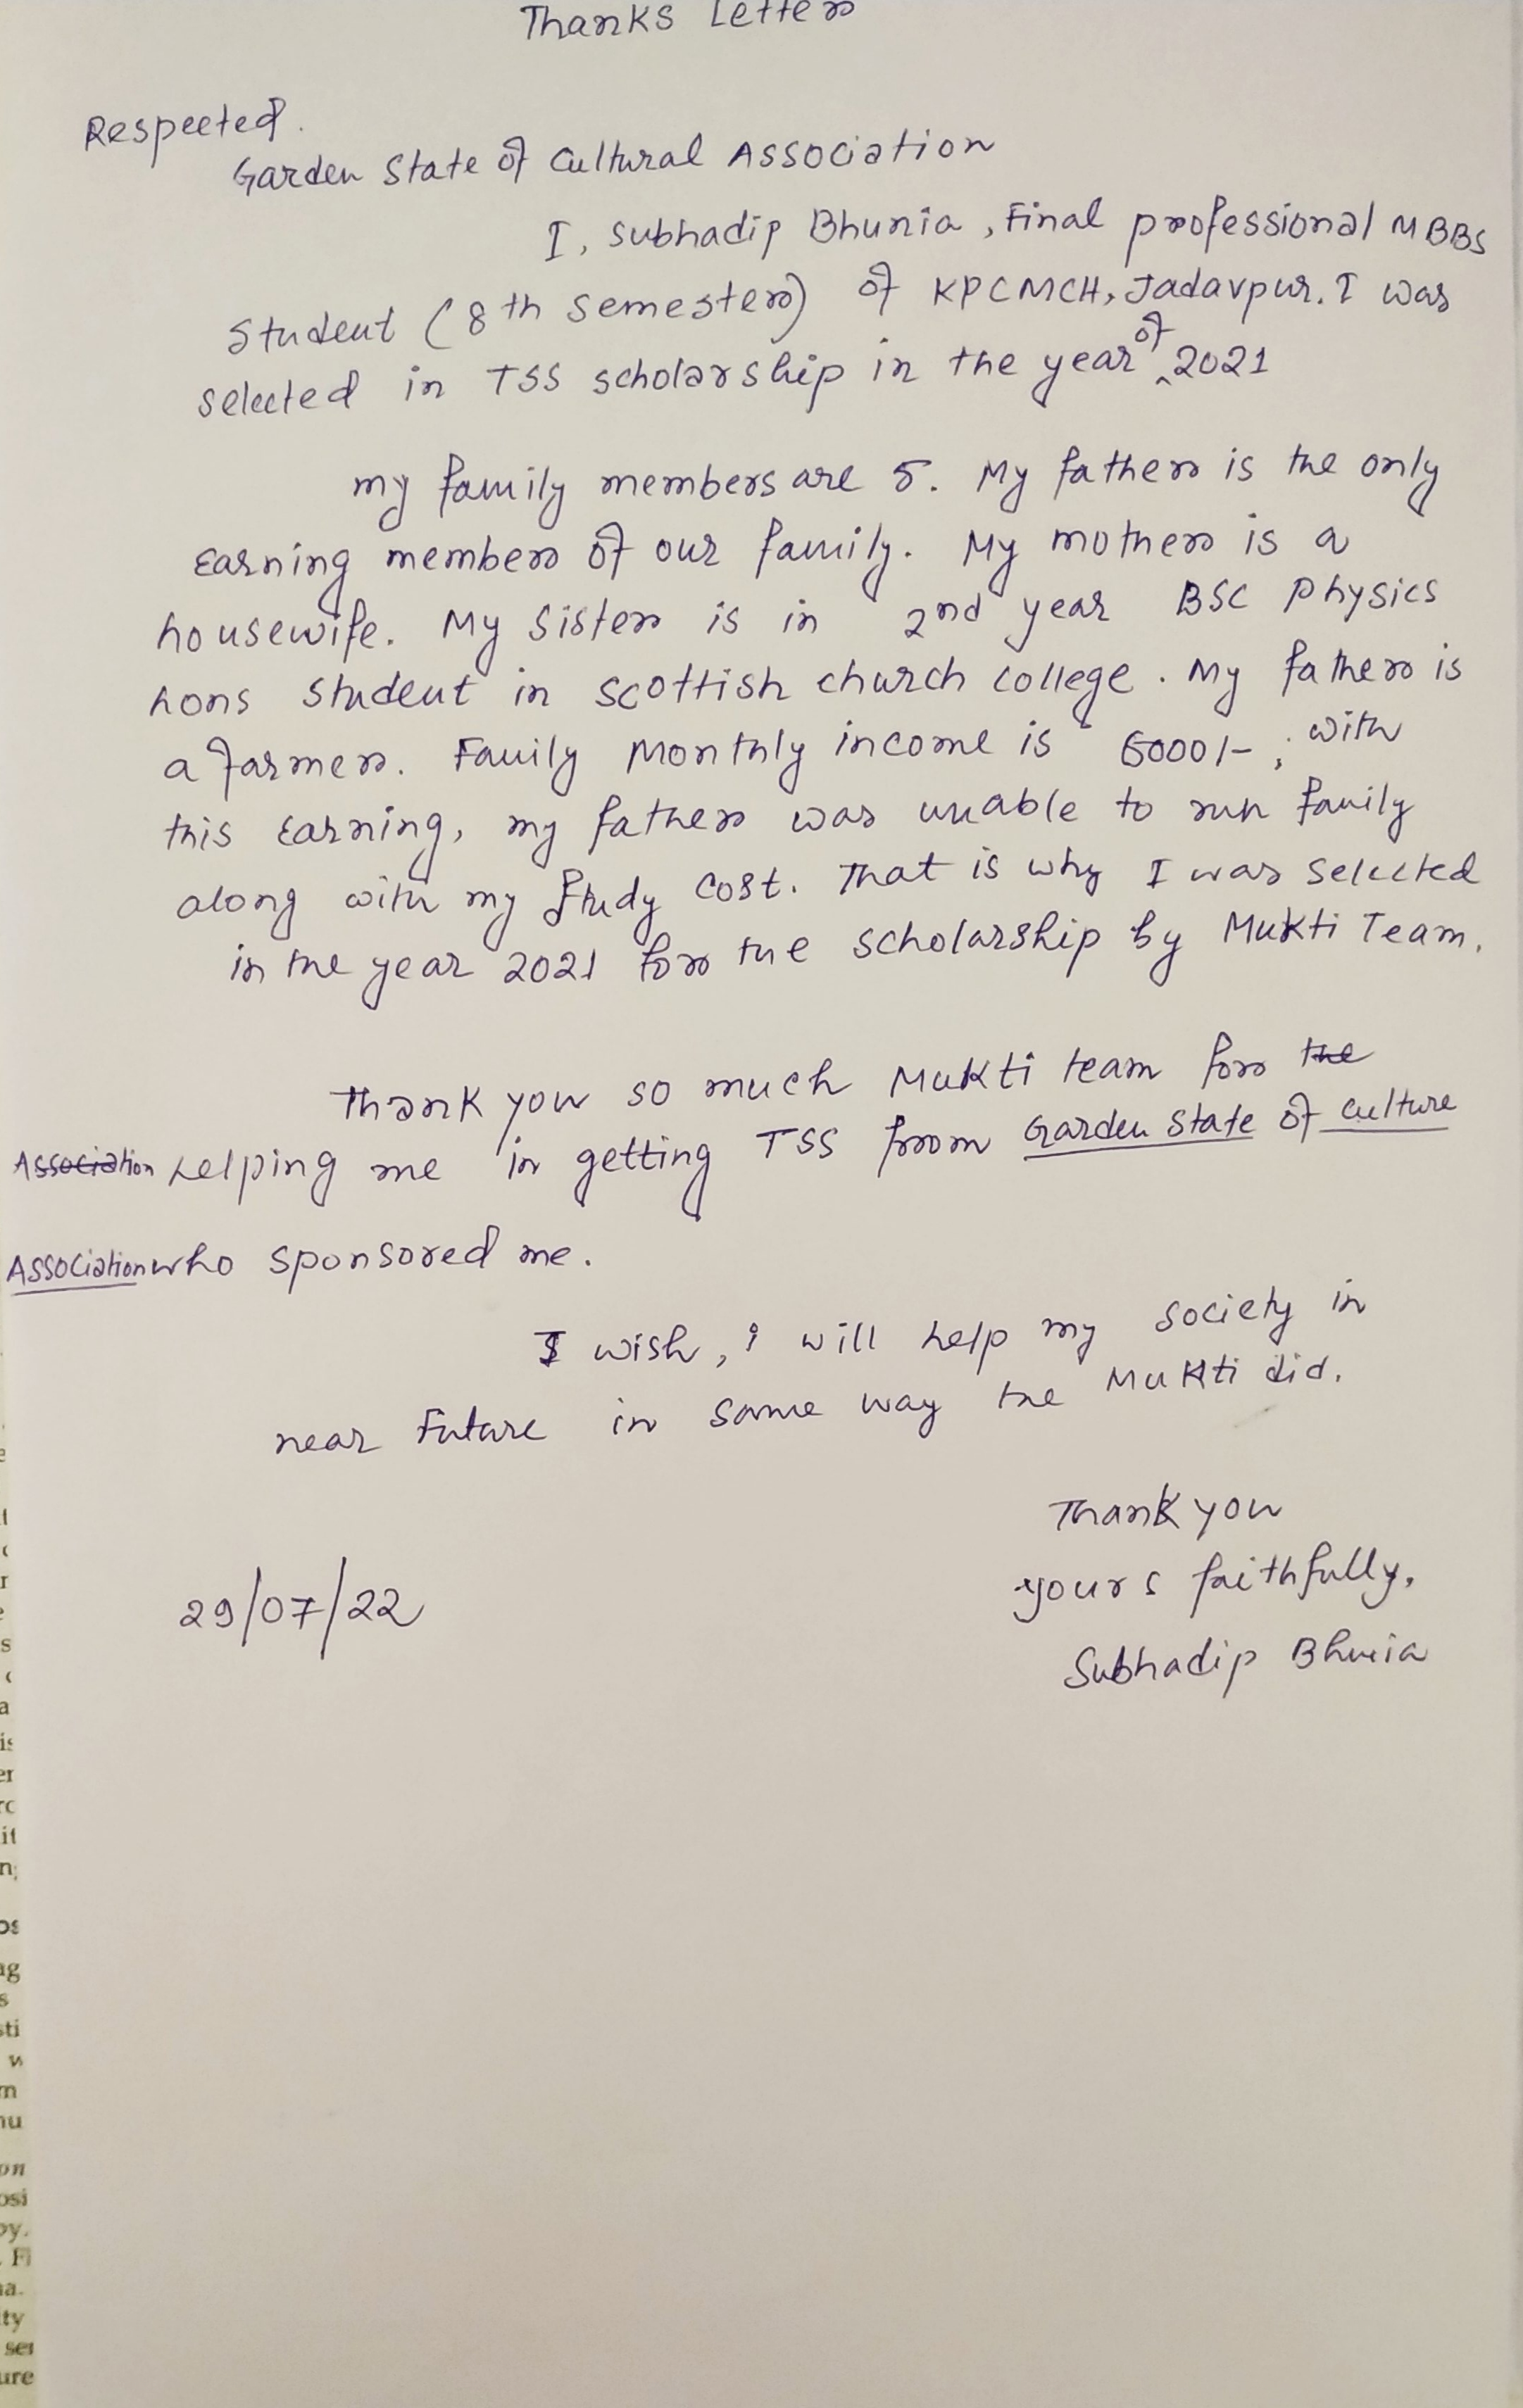 Thanks Letter
Respected.
Garden State of Cultural Association
I, Subhadip Bhunia, Final professional MBBS
Student (8th Semester) of KPCMCH, Jadavpur. I was
selected in TSS scholarship in the year of 2021
my family members are 5. My father is the only
earning member of our family. My mother is a
housewife. My Sister is in 2nd year BSC Physics
hons student in scottish church college. My father is
a farmer. Family Monthly income is 6000/-; with
this earning, my father was unable to run family
along with my study cost. That is why I was selected
in the year 2021 for the scholarship by Mukti Team.
Thank you so much Mukti team for the
Association helping me in getting TSS from Garden State of culture
Association who sponsored me.
I wish, i will help my society in
near Future in same way the Mukti did.
Thank you
yours faithfully,
29/07/22
Subhadip Bhunia